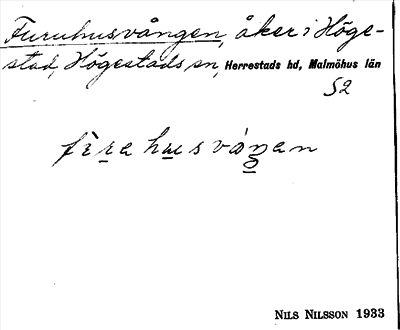 Furuhusvången, åker i Höge-
stad, Högestads sn, Herrestads hd, Malmöhus län
S2
NILS NILSSON 1933